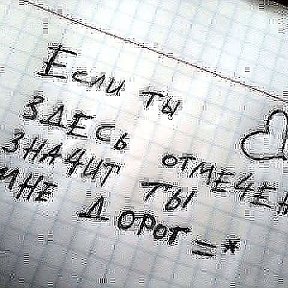 Если ты
здесь отмечен
значит ты
мне дорог =*